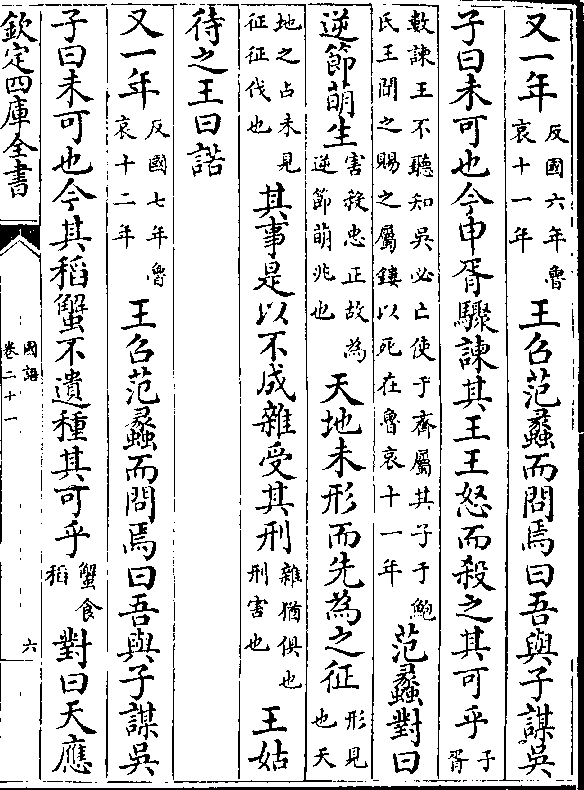 又一年反國六年魯哀十一年王召范蠡而問焉曰吾與子謀吳
子曰未可也今申胥驟諫其王王怒而殺之其可乎子胥
數諫王不聽知吳必亡使于齊屬其子于鮑氏王聞之賜之屬鏤以死在魯哀十一年范蠡對曰
逆節萌生害殺忠正故為逆節萌兆也天地未形而先為之征形見也天
地之占未見征征伐也其事是以不成雜受其刑雜猶俱也刑害也王姑
待之王曰諾
又一年反國七年魯哀十二年王召范蠡而問焉曰吾與子謀吳
子曰未可也今其稻蟹不遺種其可乎蟹食稻對曰天應
欽定四庫全書
國語
卷二十一
六